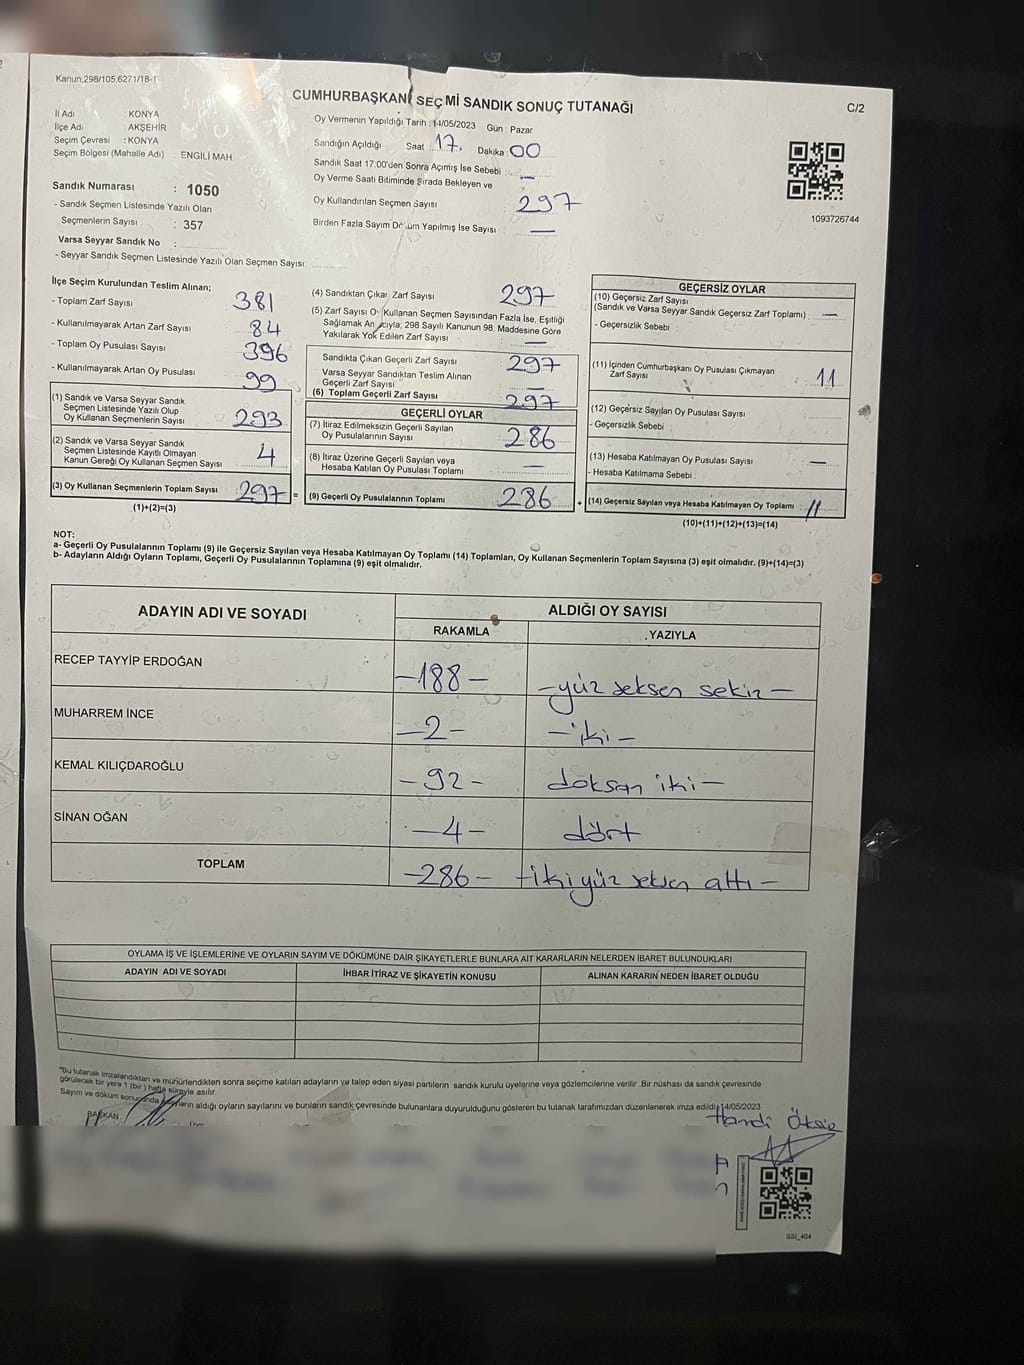 Kanun;298/105,6271/18-1
C/2
CUMHURBAŞKANI SEÇ Mİ SANDIK SONUÇ TUTANAĞI
İl Adı : KONYA
İlçe Adı : AKŞEHİR
Seçim Çevresi : KONYA
Seçim Bölgesi (Mahalle Adı) : ENGİLİ MAH.
Oy Vermenin Yapıldığı Tarih : 14/05/2023 Gün : Pazar
Sandığın Açıldığı Saat : 17. Dakika : 00
Sandık Saat 17.00'den Sonra Açımış İse Sebebi : —
Oy Verme Saati Bitiminde Sırada Bekleyen ve
Oy Kullandırılan Seçmen Sayısı : 297
Birden Fazla Sayım Döküm Yapılmış İse Sayısı : —
1093726744
Sandık Numarası : 1050
- Sandık Seçmen Listesinde Yazılı Olan
Seçmenlerin Sayısı : 357
Varsa Seyyar Sandık No :
- Seyyar Sandık Seçmen Listesinde Yazılı Olan Seçmen Sayısı:
İlçe Seçim Kurulundan Teslim Alınan;
- Toplam Zarf Sayısı 381
- Kullanılmayarak Artan Zarf Sayısı 84
- Toplam Oy Pusulası Sayısı 396
- Kullanılmayarak Artan Oy Pusulası 99
(1) Sandık ve Varsa Seyyar Sandık
Seçmen Listesinde Yazılı Olup
Oy Kullanan Seçmenlerin Sayısı 293
(2) Sandık ve Varsa Seyyar Sandık
Seçmen Listesinde Kayıtlı Olmayan
Kanun Gereği Oy Kullanan Seçmen Sayısı 4
(3) Oy Kullanan Seçmenlerin Toplam Sayısı 297 =
(1)+(2)=(3)
(4) Sandıktan Çıkan Zarf Sayısı 297
(5) Zarf Sayısı Oy Kullanan Seçmen Sayısından Fazla İse, Eşitliği
Sağlamak Amacıyla; 298 Sayılı Kanunun 98. Maddesine Göre
Yakılarak Yok Edilen Zarf Sayısı —
Sandıkta Çıkan Geçerli Zarf Sayısı 297
Varsa Seyyar Sandıktan Teslim Alınan
Geçerli Zarf Sayısı —
(6) Toplam Geçerli Zarf Sayısı 297
GEÇERLİ OYLAR
(7) İtiraz Edilmeksizin Geçerli Sayılan
Oy Pusulalarının Sayısı 286
(8) İtiraz Üzerine Geçerli Sayılan veya
Hesaba Katılan Oy Pusulası Toplamı —
(9) Geçerli Oy Pusulalarının Toplamı 286 +
GEÇERSİZ OYLAR
(10) Geçersiz Zarf Sayısı
(Sandık ve Varsa Seyyar Sandık Geçersiz Zarf Toplamı) : —
- Geçersizlik Sebebi :
(11) İçinden Cumhurbaşkanı Oy Pusulası Çıkmayan
Zarf Sayısı : 11
(12) Geçersiz Sayılan Oy Pusulası Sayısı
- Geçersizlik Sebebi :
(13) Hesaba Katılmayan Oy Pusulası Sayısı : —
- Hesaba Katılmama Sebebi :
(14) Geçersiz Sayılan veya Hesaba Katılmayan Oy Toplamı : 11
(10)+(11)+(12)+(13)=(14)
NOT:
a- Geçerli Oy Pusulalarının Toplamı (9) ile Geçersiz Sayılan veya Hesaba Katılmayan Oy Toplamı (14) Toplamları, Oy Kullanan Seçmenlerin Toplam Sayısına (3) eşit olmalıdır. (9)+(14)=(3)
b- Adayların Aldığı Oyların Toplamı, Geçerli Oy Pusulalarının Toplamına (9) eşit olmalıdır.
ADAYIN ADI VE SOYADI
ALDIĞI OY SAYISI
RAKAMLA YAZIYLA
RECEP TAYYİP ERDOĞAN –188– –yüz seksen sekiz–
MUHARREM İNCE –2– –iki–
KEMAL KILIÇDAROĞLU –92– doksan iki–
SİNAN OĞAN –4– dört
TOPLAM –286– –ikiyüz seksen altı–
OYLAMA İŞ VE İŞLEMLERİNE VE OYLARIN SAYIM VE DÖKÜMÜNE DAİR ŞİKAYETLERLE BUNLARA AİT KARARLARIN NELERDEN İBARET BULUNDUKLARI
ADAYIN ADI VE SOYADI İHBAR İTİRAZ VE ŞİKAYETİN KONUSU ALINAN KARARIN NEDEN İBARET OLDUĞU
"Bu tutanak imzalandıktan ve mühürlendikten sonra seçime katılan adayların ve talep eden siyasi partilerin sandık kurulu üyelerine veya gözlemcilerine verilir .Bir nüshası da sandık çevresinde
görülecek bir yere 1 (bir ) hafta süreyle asılır.
Sayım ve döküm sonucunda adayların aldığı oyların sayılarını ve bunların sandık çevresinde bulunanlara duyurulduğunu gösteren bu tutanak tarafımızdan düzenlenerek imza edildi. 14/05/2023
BAŞKAN
SSI_404